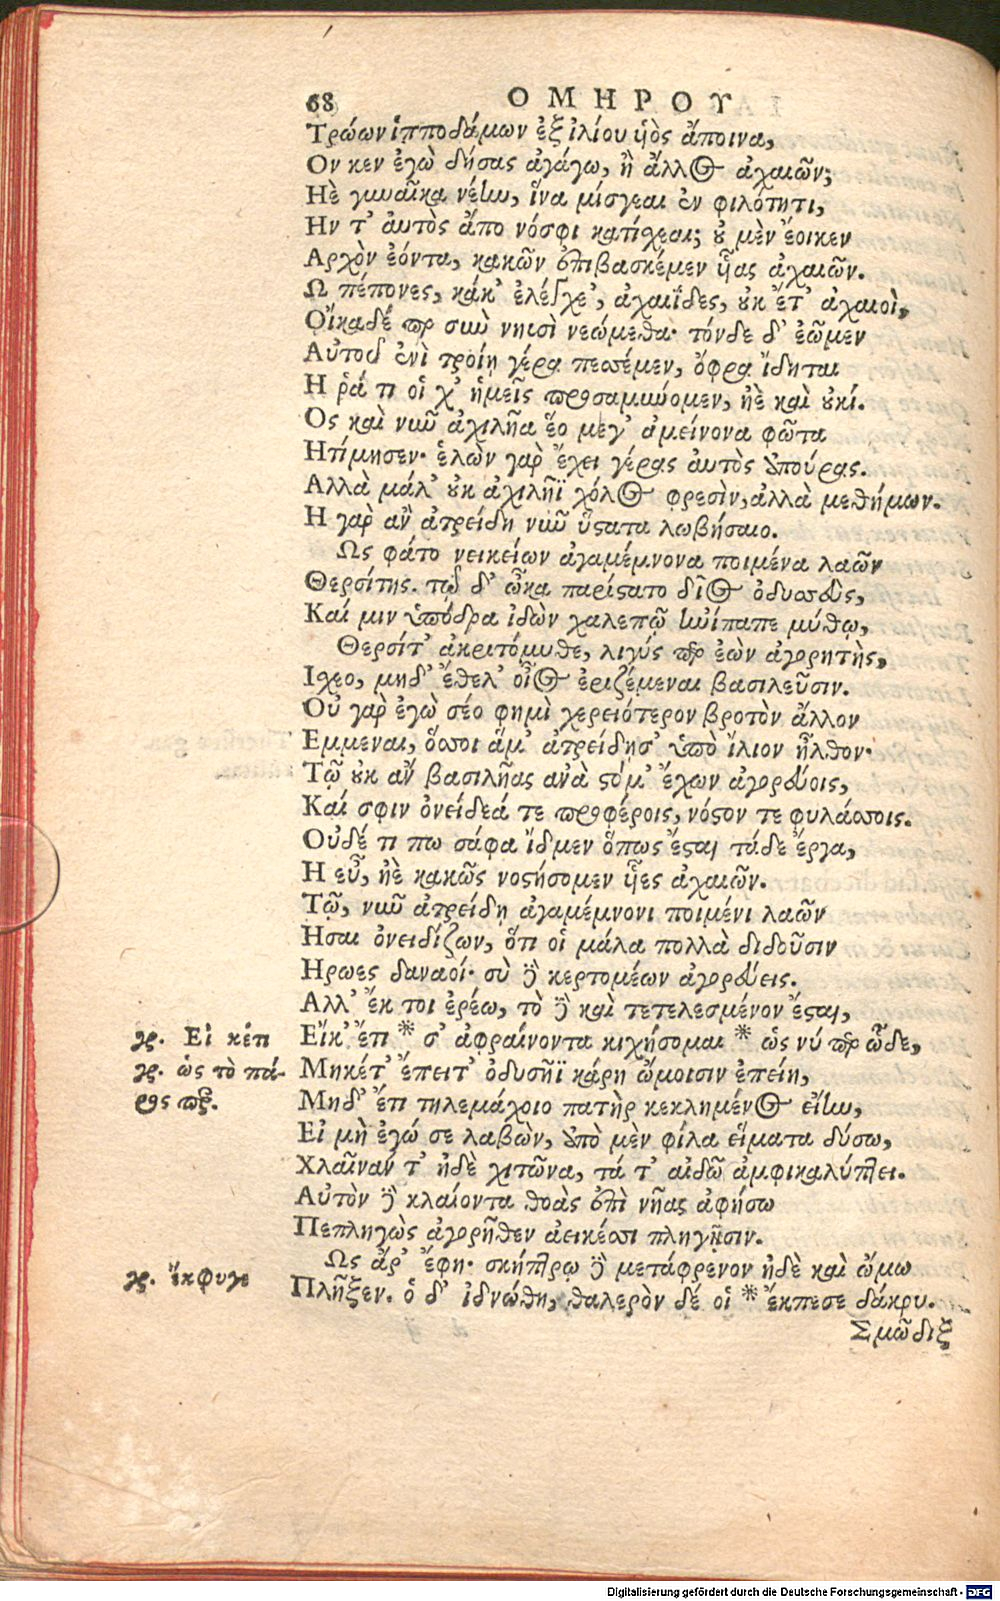 68 ΟΜΗΡΟΥ
Τρώων ἱπποδάμων ἐξ ἰλίου ὑὸς ἄποινα,
Ον κεν ἐγὼ δήσας ἀγάγω, ἢ ἄλλος ἀχαιῶν;
Ηὲ γυναῖκα νέην, ἵνα μίσγεαι ἐν φιλότητι,
Ην τ' ἀυτὸς ἄπο νόσφι κατίσχεαι; οὐ μὲν ἔοικεν
Αρχὸν ἐόντα, κακῶν ἐπιβασκέμεν ἧας ἀχαιῶν.
Ω πέπονες, κάκ' ἐλέγχε', ἀχαιΐδες, οὐκ ἔτ' ἀχαιοὶ,
Οἴκαδέ περ σωὺ νηυσὶ νεώμεθα· τόνδε δ' ἐῶμεν
Αὐτοῦ ἐνὶ τροίῃ γέρα πεσσέμεν, ὄφρα ἴδηται
Η ῥά τι οἱ χ' ἡμεῖς προσαμύνομεν, ἠὲ καὶ οὐκί.
Ὃς καὶ νῦν ἀχιλῆα ἕο μέγ' ἀμείνονα φῶτα
Ητίμησεν· ἑλὼν γὰρ ἔχει γέρας ἀυτὸς ἀπούρας.
Αλλὰ μάλ' οὐκ ἀχιλῆϊ χόλος φρεσὶν, ἀλλὰ μεθήμων.
Η γὰρ ἂν ἀτρείδη νῦν ὕστατα λωβήσαιο.
Ως φάτο νεικείων ἀγαμέμνονα ποιμένα λαῶν
Θερσίτης. τῷ δ' ὦκα παρίστατο δῖος ὀδυσσεὺς,
Καί μιν ὑπόδρα ἰδὼν χαλεπῷ ἠνίπαπε μύθῳ,
Θερσίτ' ἀκριτόμυθε, λιγύς περ ἐὼν ἀγορητὴς,
Ισχεο, μηδ' ἔθελ' οἶος ἐριζέμεναι βασιλεῦσιν.
Οὐ γὰρ ἐγὼ σέο φημὶ χερειότερον βροτὸν ἄλλον
Εμμεναι, ὅσσοι ἅμ' ἀτρείδησ' ὑπὸ ἴλιον ἦλθον·
Τῷ οὐκ ἂν βασιλῆας ἀνὰ στόμ' ἔχων ἀγορεύοις,
Καί σφιν ὀνείδεά τε προφέροις, νόστον τε φυλάσσοις.
Οὐδέ τι πω σάφα ἴδμεν ὅπως ἔσται τάδε ἔργα,
Η εὖ, ἠὲ κακῶς νοστήσομεν ἧες ἀχαιῶν.
Τῷ, νῦν ἀτρείδῃ ἀγαμέμνονι ποιμένι λαῶν
Ησαι ὀνειδίζων, ὅτι οἱ μάλα πολλὰ διδοῦσιν
Ηρωες δαναοί· σὺ δὲ κερτομέων ἀγορεύεις.
Αλλ' ἔκ τοι ἐρέω, τὸ δὲ καὶ τετελεσμένον ἔσται,
γρ. Εἰ κέτι Εἴκ' ἔτι * σ' ἀφραίνοντα κιχήσομαι * ὡς νύ περ ὧδε,
γρ. ὡς τὸ πά- Μηκέτ' ἔπειτ' ὀδυσῆϊ κάρη ὤμοισιν ἐπείη,
ρος περ. Μηδ' ἔτι τηλεμάχοιο πατὴρ κεκλημένος εἴην,
Εἰ μὴ ἐγώ σε λαβὼν, ἀπὸ μὲν φίλα εἵματα δύσω,
Χλαῖνάν τ' ἠδὲ χιτῶνα, τά τ' αἰδῶ ἀμφικαλύπτει.
Αὐτὸν δὲ κλαίοντα θοὰς ἐπὶ νῆας ἀφήσω
Πεπληγὼς ἀγορῆθεν ἀεικέσσι πληγῇσιν.
Ως ἄρ' ἔφη· σκήπτρῳ δὲ μετάφρενον ἠδὲ καὶ ὤμω
γρ. ἔκφυγε Πλῆξεν. ὁ δ' ἰδνώθη, θαλερὸν δέ οἱ * ἔκπεσε δάκρυ.
Σμῶδιξ
Digitalisierung gefördert durch die Deutsche Forschungsgemeinschaft - DFG